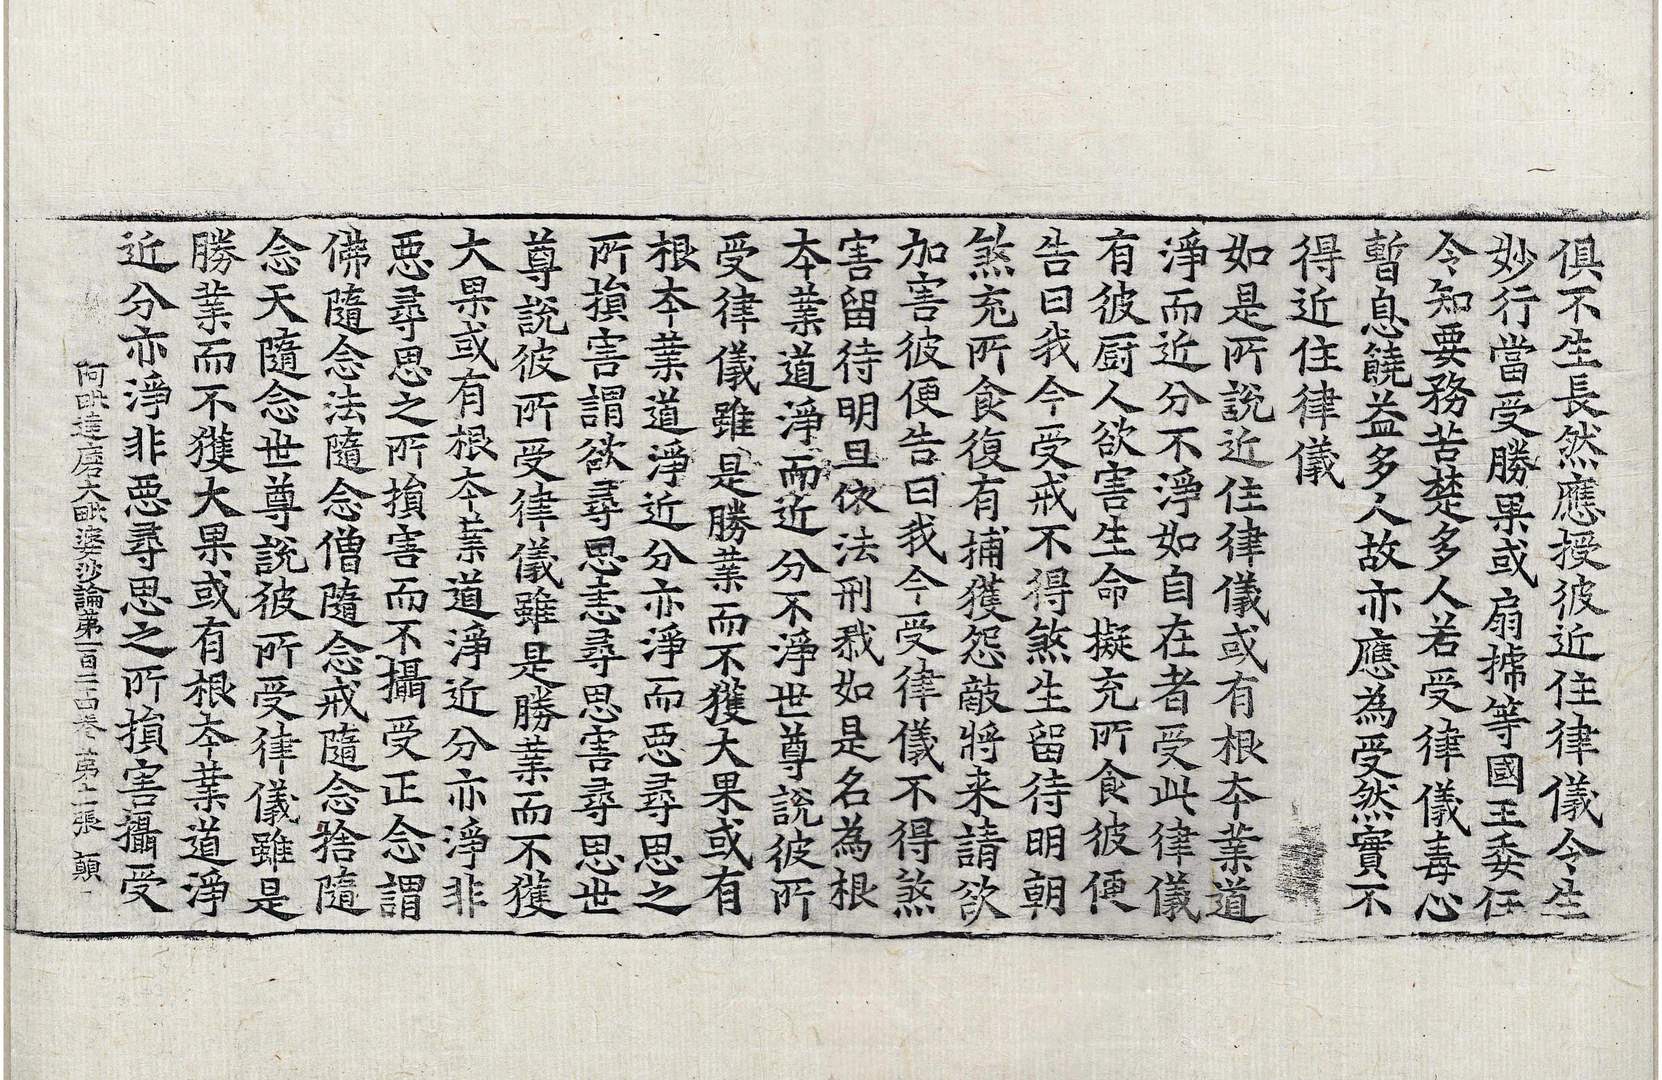 俱不生長然應授彼近住律儀令生
妙行當受勝果或扇搋等國王委任
令知要務苦楚多人若受律儀毒心
暫息饒益多人故亦應為受然實不
得近住律儀
如是所說近住律儀或有根本業道
淨而近分不淨如自在者受此律儀
有彼厨人欲害生命擬充所食彼便
告曰我今受戒不得煞生留待明朝
煞充所食復有捕獲怨敵將来請欲
加害彼便告曰我今受律儀不得煞
害留待明旦依法刑戮如是名為根
本業道淨而近分不淨世尊說彼所
受律儀雖是勝業而不獲大果或有
根本業道淨近分亦淨而惡尋思之
所損害謂欲尋思恚尋思害尋思世
尊說彼所受律儀雖是勝業而不獲
大果或有根本業道淨近分亦淨非
惡尋思之所損害而不攝受正念謂
佛隨念法隨念僧隨念戒隨念捨隨
念天隨念世尊說彼所受律儀雖是
勝業而不獲大果或有根本業道淨
近分亦淨非惡尋思之所損害攝受
阿毗達磨大毗婆沙論第一百二十四卷 第十二張 顛